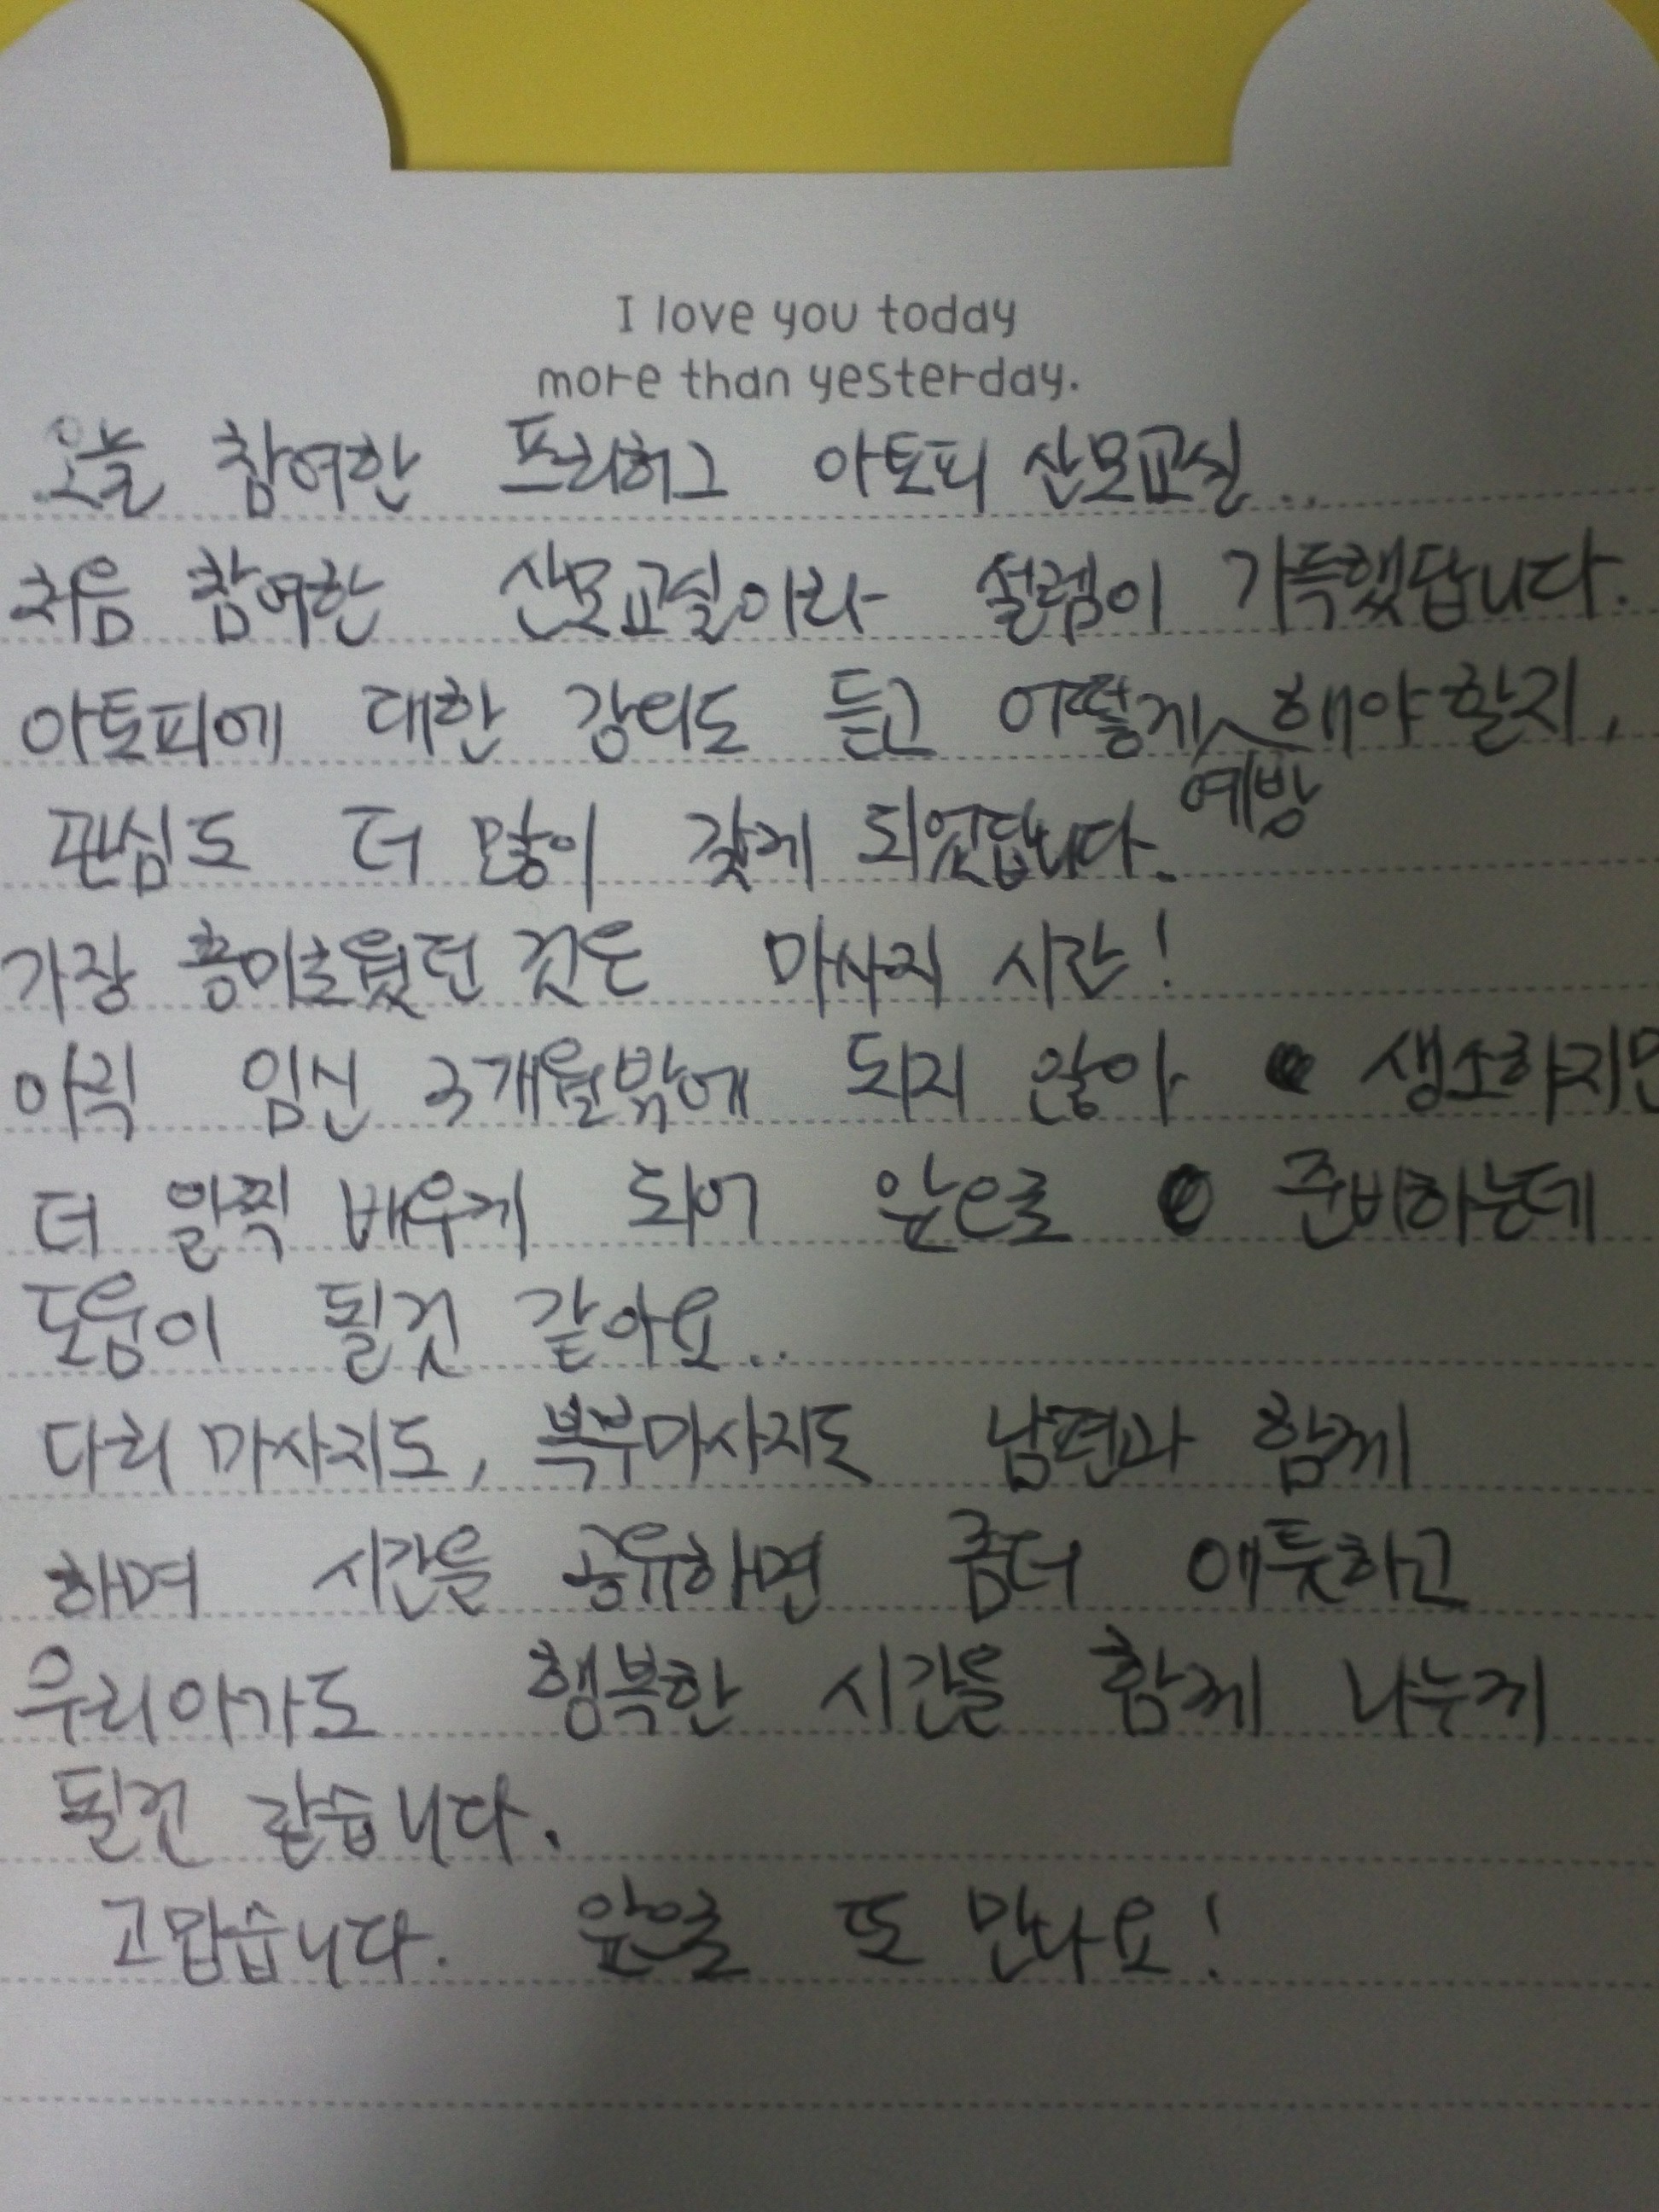 I love you today
more than yesterday.
오늘 참여한 프리허그 아토피 산모교실..
처음 참여한 산모교실이라 설렘이 가득했답니다.
아토피에 대한 강의도 듣고 어떻게 예방 해야할지,
관심도 더 많이 갖게 되었답니다.
가장 흥미로웠던 것은 마사지 시간!
아직 임신 3개월밖에 되지 않아 생소하지만
더 일찍 배우게 되어 앞으로 준비하는데
도움이 될것 같아요..
다리 마사지도, 복부마사지도 남편과 함께
하며 시간을 공유하면 좀더 애틋하고
우리아가도 행복한 시간을 함께 나누게
될것 같습니다.
고맙습니다. 앞을로 또 만나요!